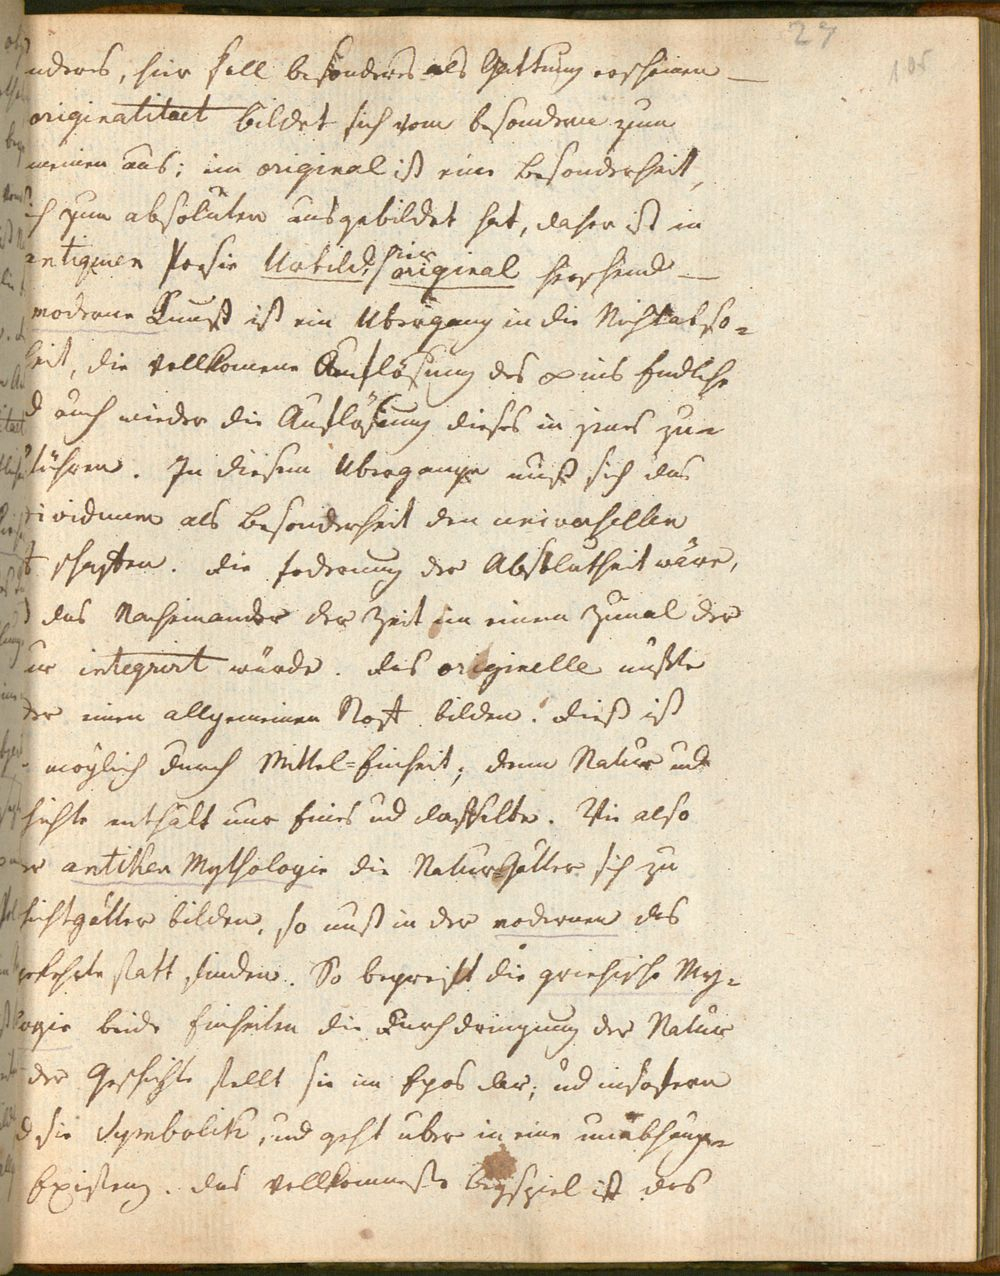 27
105
nderes, hier soll besonderes als Gattung erscheinen —
originalitaet bildet sich vom besondern zum
meinen aus; im original ist eine Besonderheit,
ch zum absoluten ausgebildet hat, daher ist in
antiquen Poesie Urbild, hier original herrschend —
moderne Kunst ist ein Übergang in die Nichtabso=
heit, die vollkomene Auflösung des ins Endliche
d auch wieder die Auflösung dieses in jenes zu
führen. In diesem Übergange muß sich das
ividuum als Besonderheit den universellen
schaffen. die foderung der Absolutheit wäre,
das Nacheinander der Zeit in einen Zumal der
ur integrirt würde. das originelle müßte
der einen allgemeinen Stoff bilden. dieß ist
möglich durch Mittel=Einheit; denn Natur und
hichte enthält nur Eines und dasselbe. Wie also
er antiken Mythologie die Natur=Götter sich zu
hichtgötter bilden, so muß in der modernen das
gekehrte statt finden. So begreift die griechische My=
logie beide Einheiten die Durchdringung der Natur
der Geschichte stellt sie im Epos dar; und insofern
d sie Symbolik, und geht über in eine unabhänge
Existenz. das vollkommenste Beyspiel ist das